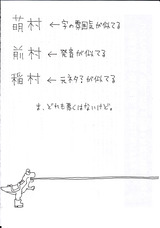 萌村 ←字の雰囲気が似てる
前村 ←発音が似てる
稲村 ←元ネタ?が似てる
ま、どれも悪くはないけど。